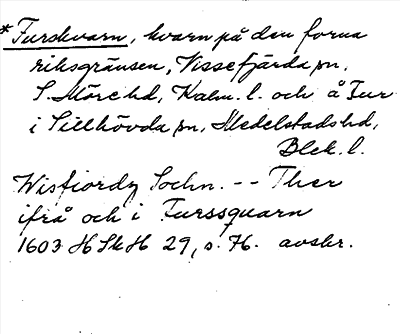 *Furskvarn, kvarn på den forna
riksgränsen, Vissefjärda sn,
S. Möre hd, Kalm. l. och å Fur
i Sillhövda sn, Medelstads hd,
Blek. l.
Wisfiordz Sochn. -- Ther
ifrå och i Furssquarn
1603 HSkH 29, s. 76. avskr.